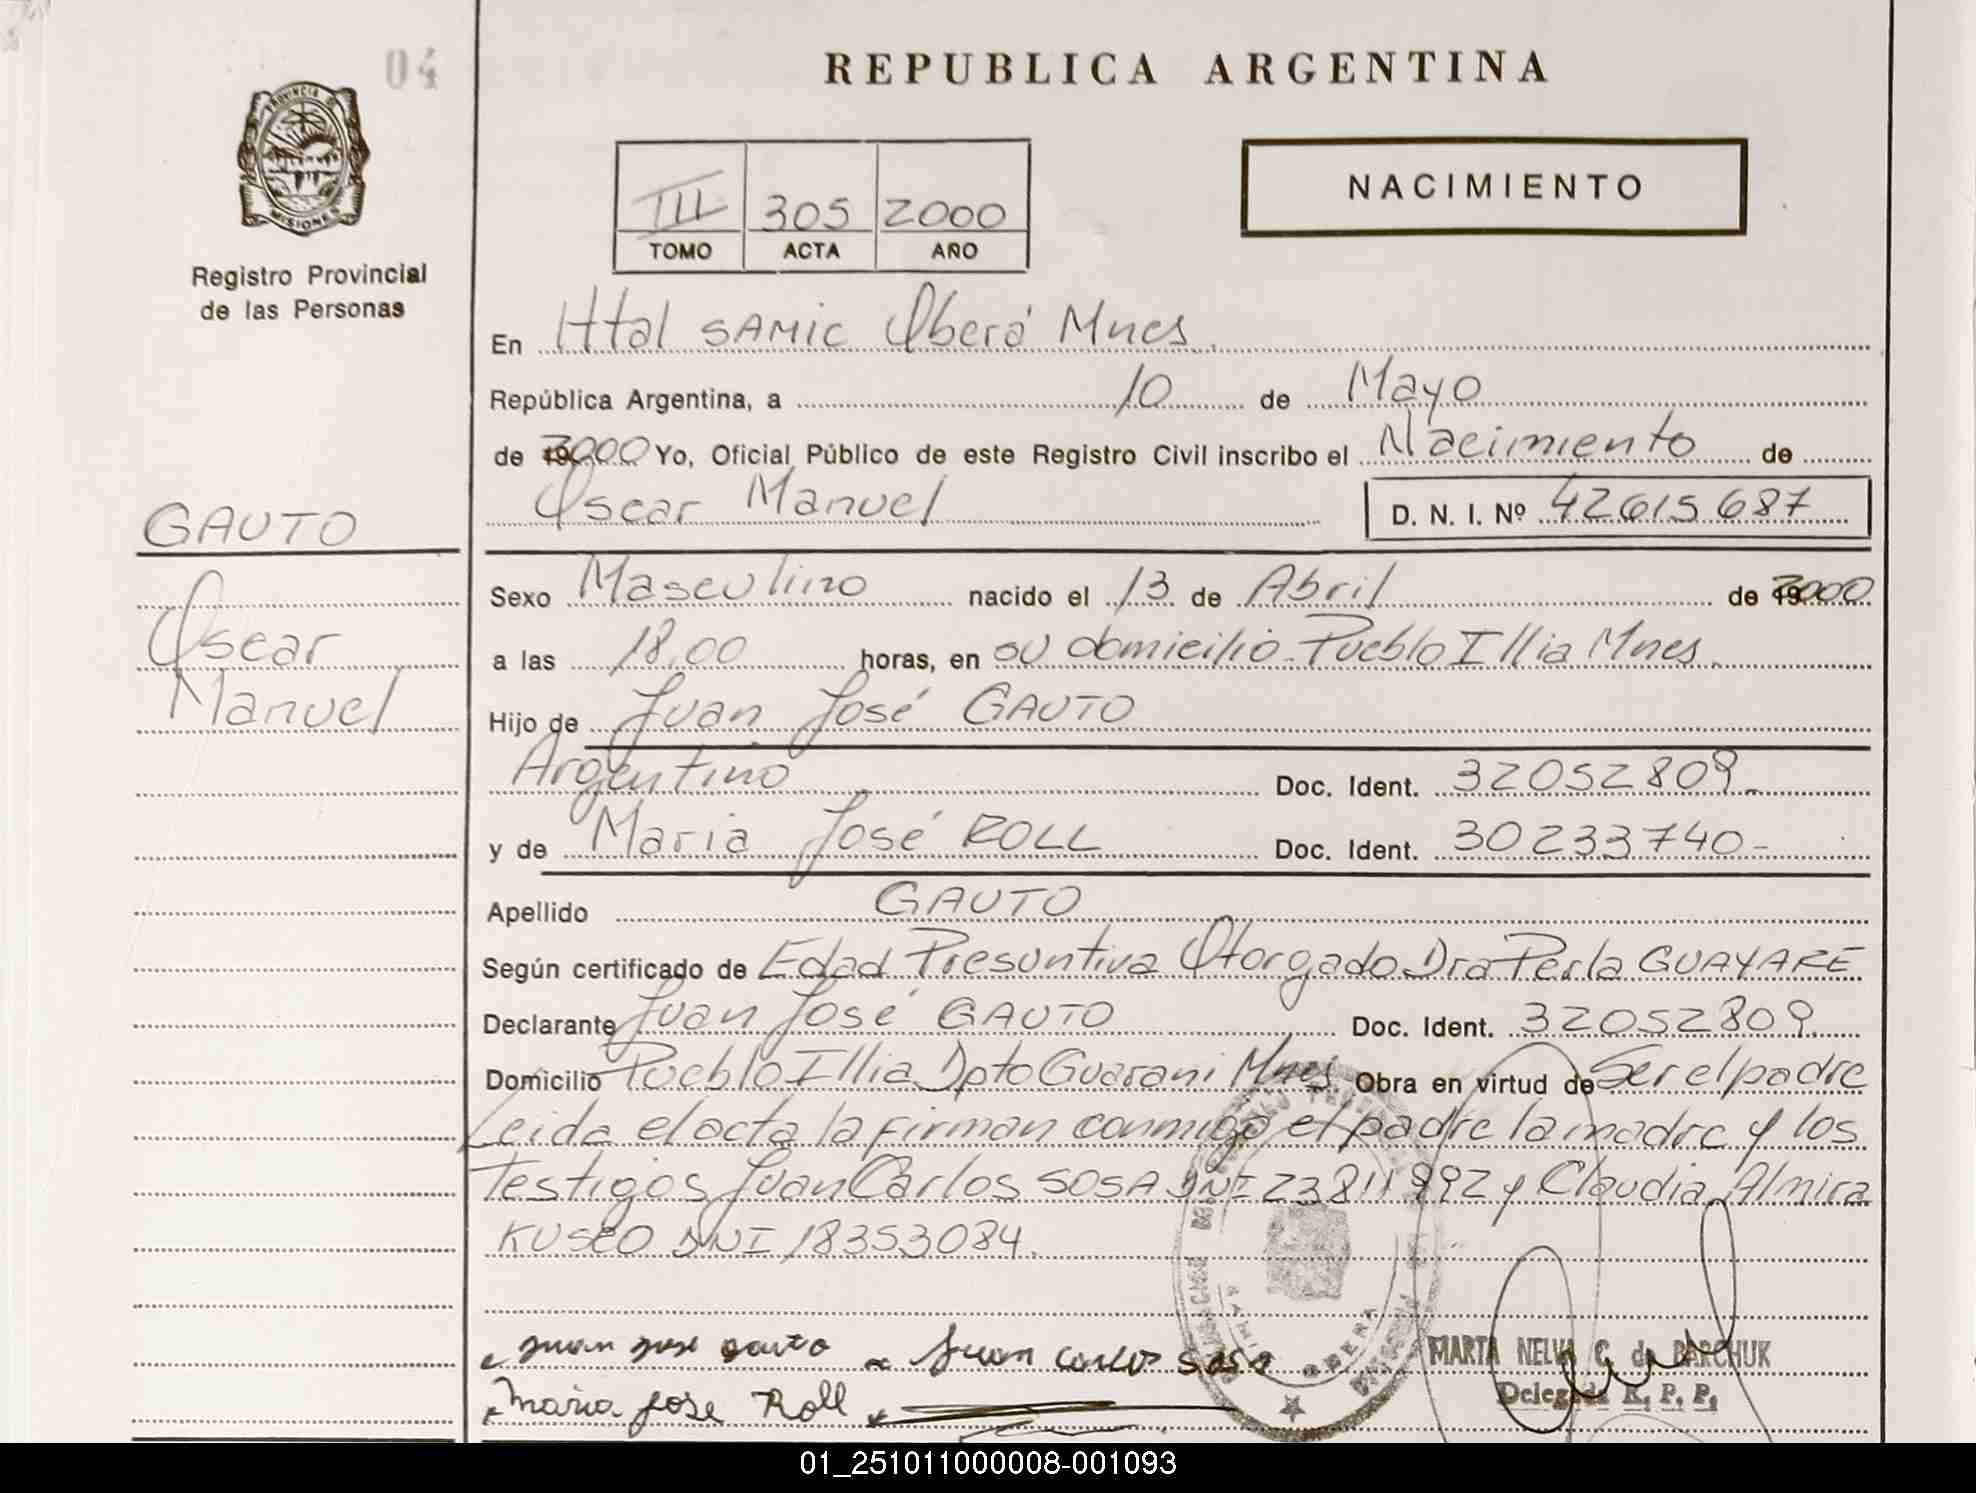 04
REPUBLICA ARGENTINA
PROVINCIA DE
MISIONES
Registro Provincial
de las Personas
III 305 2000
TOMO ACTA AÑO
NACIMIENTO
En Htal SAMIC Oberá Mnes.
República Argentina, a 10 de Mayo
de 2000 Yo, Oficial Público de este Registro Civil inscribo el Nacimiento de
Oscar Manuel D. N. I. Nº 42615687
GAUTO
Oscar
Manuel
Sexo Masculino nacido el 13 de Abril de 2000
a las 18,00 horas, en su domicilio-Pueblo Illia Mnes.
Hijo de Juan José GAUTO
Argentino Doc. Ident. 32052809-
y de Maria José ROLL Doc. Ident. 30233740-
Apellido GAUTO
Según certificado de Edad Presuntiva Otorgado Dra Perla GUAYARE
Declarante Juan José GAUTO Doc. Ident. 32052809
Domicilio Pueblo Illia Dpto Guarani Mnes Obra en virtud de Ser el padre
Leida el acta la firman conmigo, el padre la madre y los
Testigos Juan Carlos SOSA DNI 23811892 y Claudia Almira
KUSEO DNI 18353084.
juan jose gauto Juan Carlos Sosa
maria jose Roll
OBERA
MARTA NELVA C. de PARCHUK
Delegada R. P. P.
01_251011000008-001093